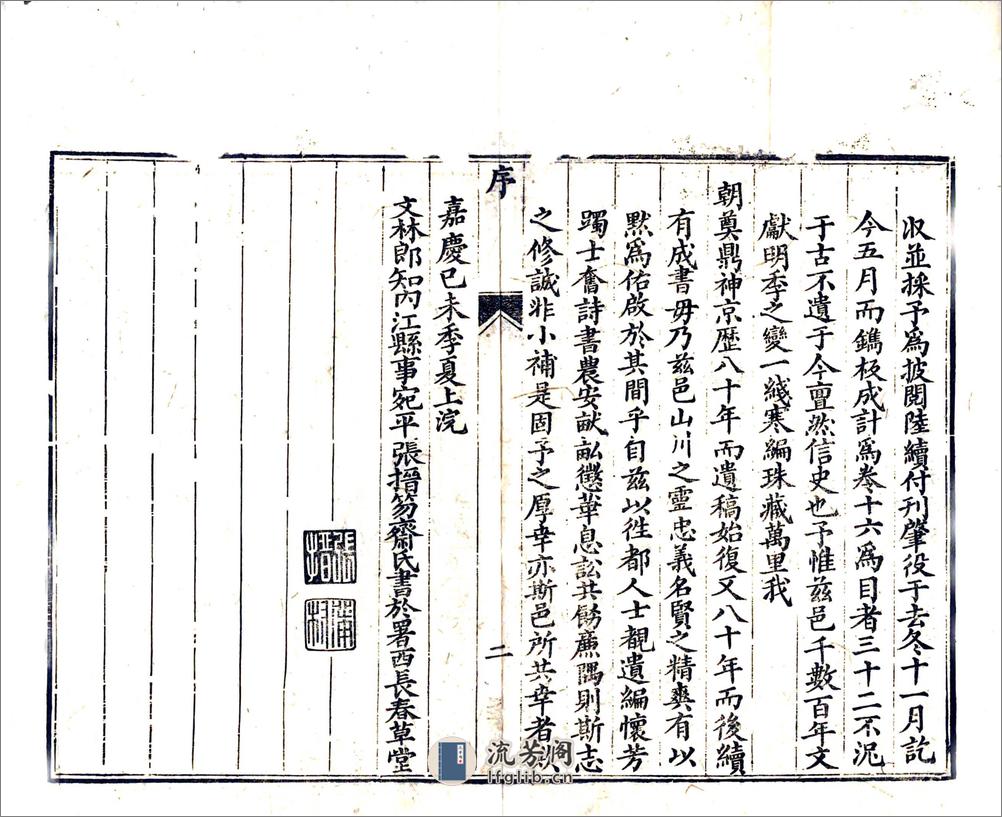 収並採予為披閱陸續付刊肇役于去冬十一月訖
今五月而鐫板成計為卷十六為目者三十二不泥
于古不遺于今亶然信史也予惟茲邑千數百年文
獻明季之變一綫寒編珠藏萬里我
朝奠鼎神京歷八十年而遺稿始復又八十年而後續
有成書毋乃茲邑山川之靈忠義名賢之精爽有以
默為佑啟於其間乎自茲以徃都人士覩遺編懷芳
躅士奮詩書農安畎畝懲華息訟共勵廉隅則斯志
之修誠非小補是固予之厚幸亦斯邑所共幸者
序
二
嘉慶己未季夏上浣
文林郎知內江縣事宛平張搢笏齋氏書於署西長春草堂
流芳阁
lfglib.cn